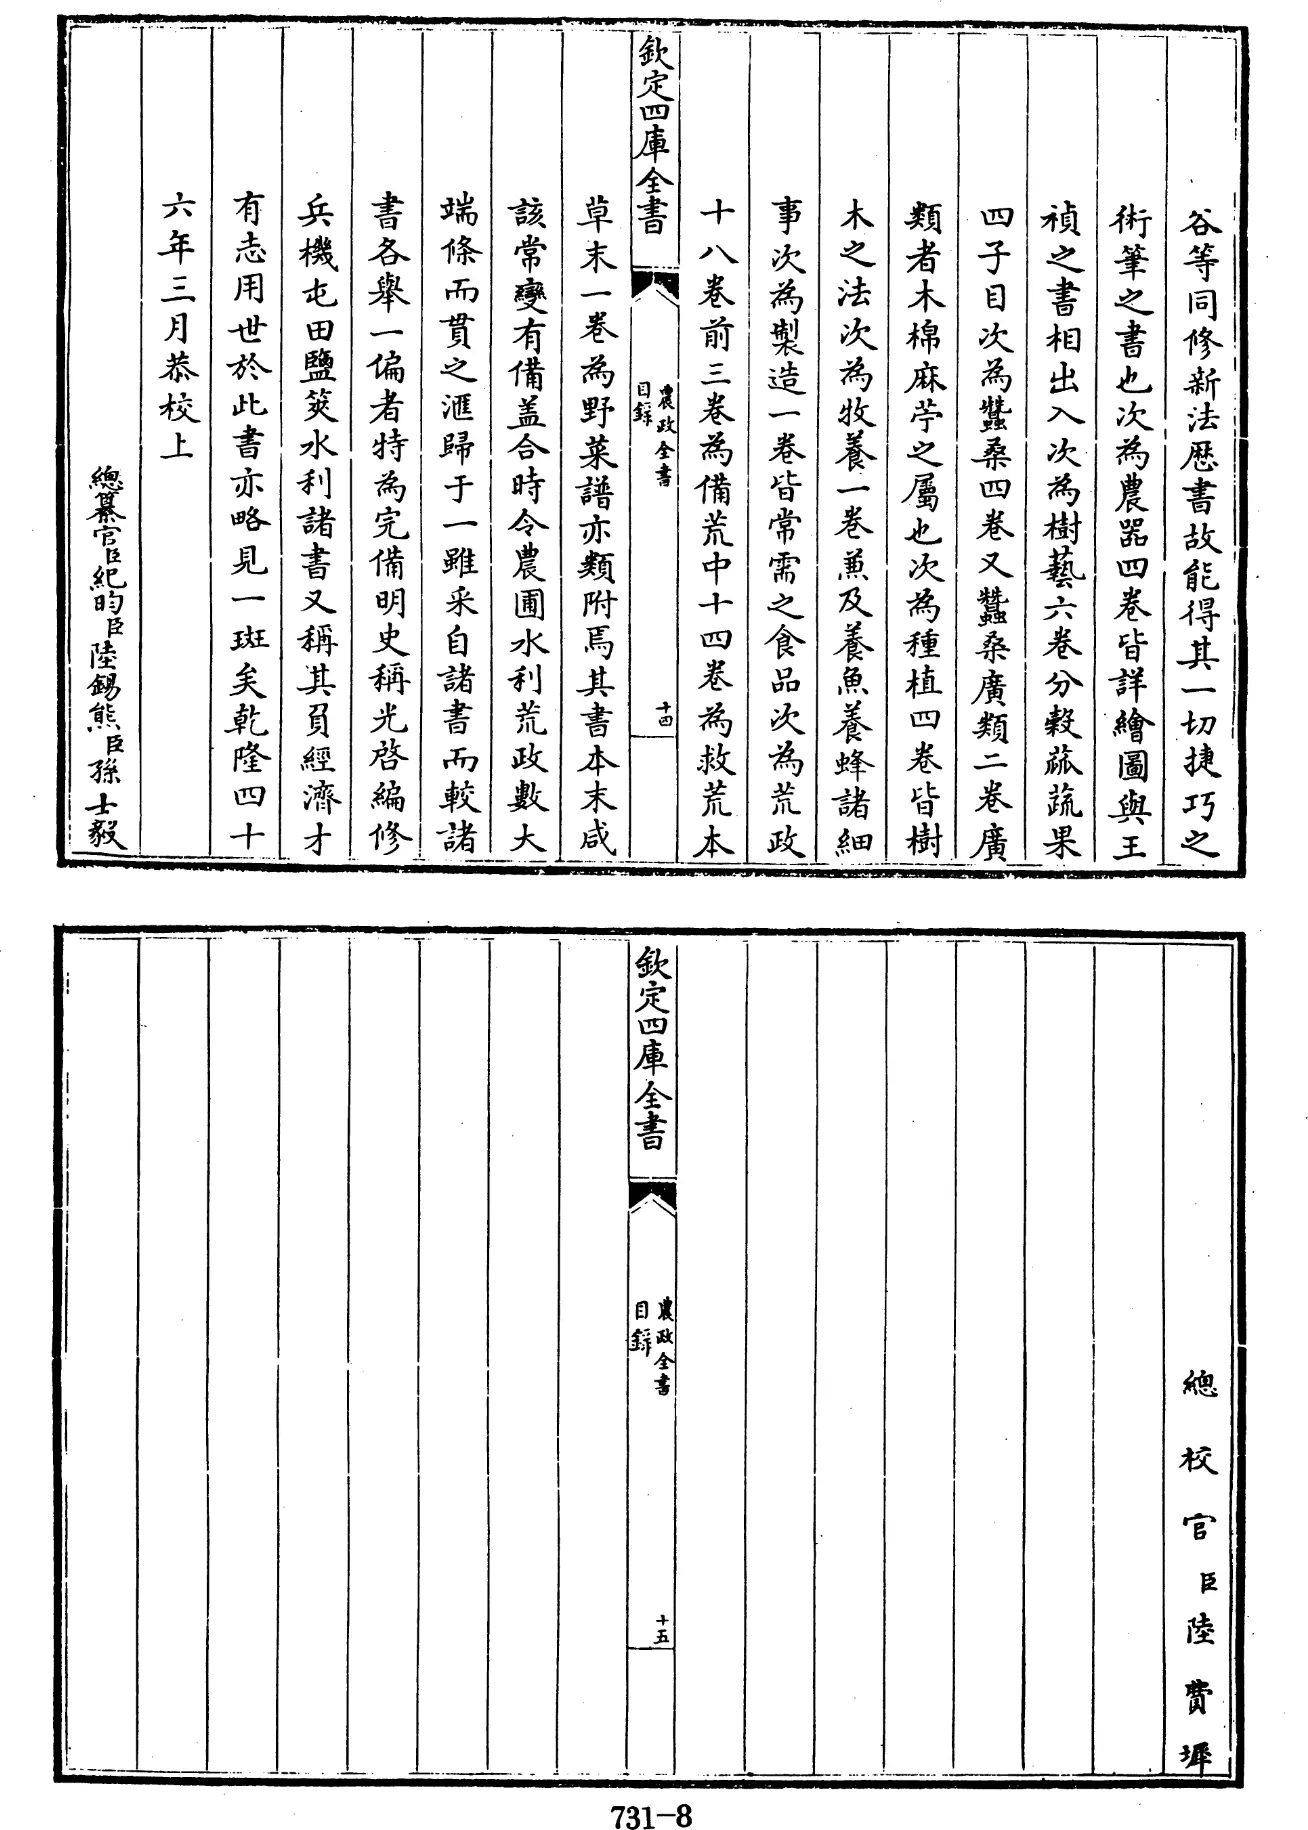 谷等同修新法歴書故能得其一切捷巧之
術筆之書也次為農器四卷皆詳繪圖與王
禎之書相出入次為樹藝六卷分穀蓏蔬果
四子目次為蠶桑四卷又蠶桑廣類二卷廣
類者木棉麻苧之屬也次為種植四卷皆樹
木之法次為牧養一卷兼及養魚養蜂諸細
事次為製造一卷皆常需之食品次為荒政
十八卷前三卷為備荒中十四卷為救荒本
欽定四庫全書
農政全書
目錄
十四
草末一卷為野菜譜亦類附焉其書本末咸
該常變有備盖合時令農圃水利荒政數大
端條而貫之滙歸于一雖采自諸書而較諸
書各舉一偏者特為完備明史稱光啓編修
兵機屯田鹽筴水利諸書又稱其負經濟才
有志用世於此書亦略見一斑矣乾隆四十
六年三月恭校上
總纂官臣紀昀臣陸錫熊臣孫士毅
總校官臣陸費墀
欽定四庫全書
農政全書
目錄
十五
731-8